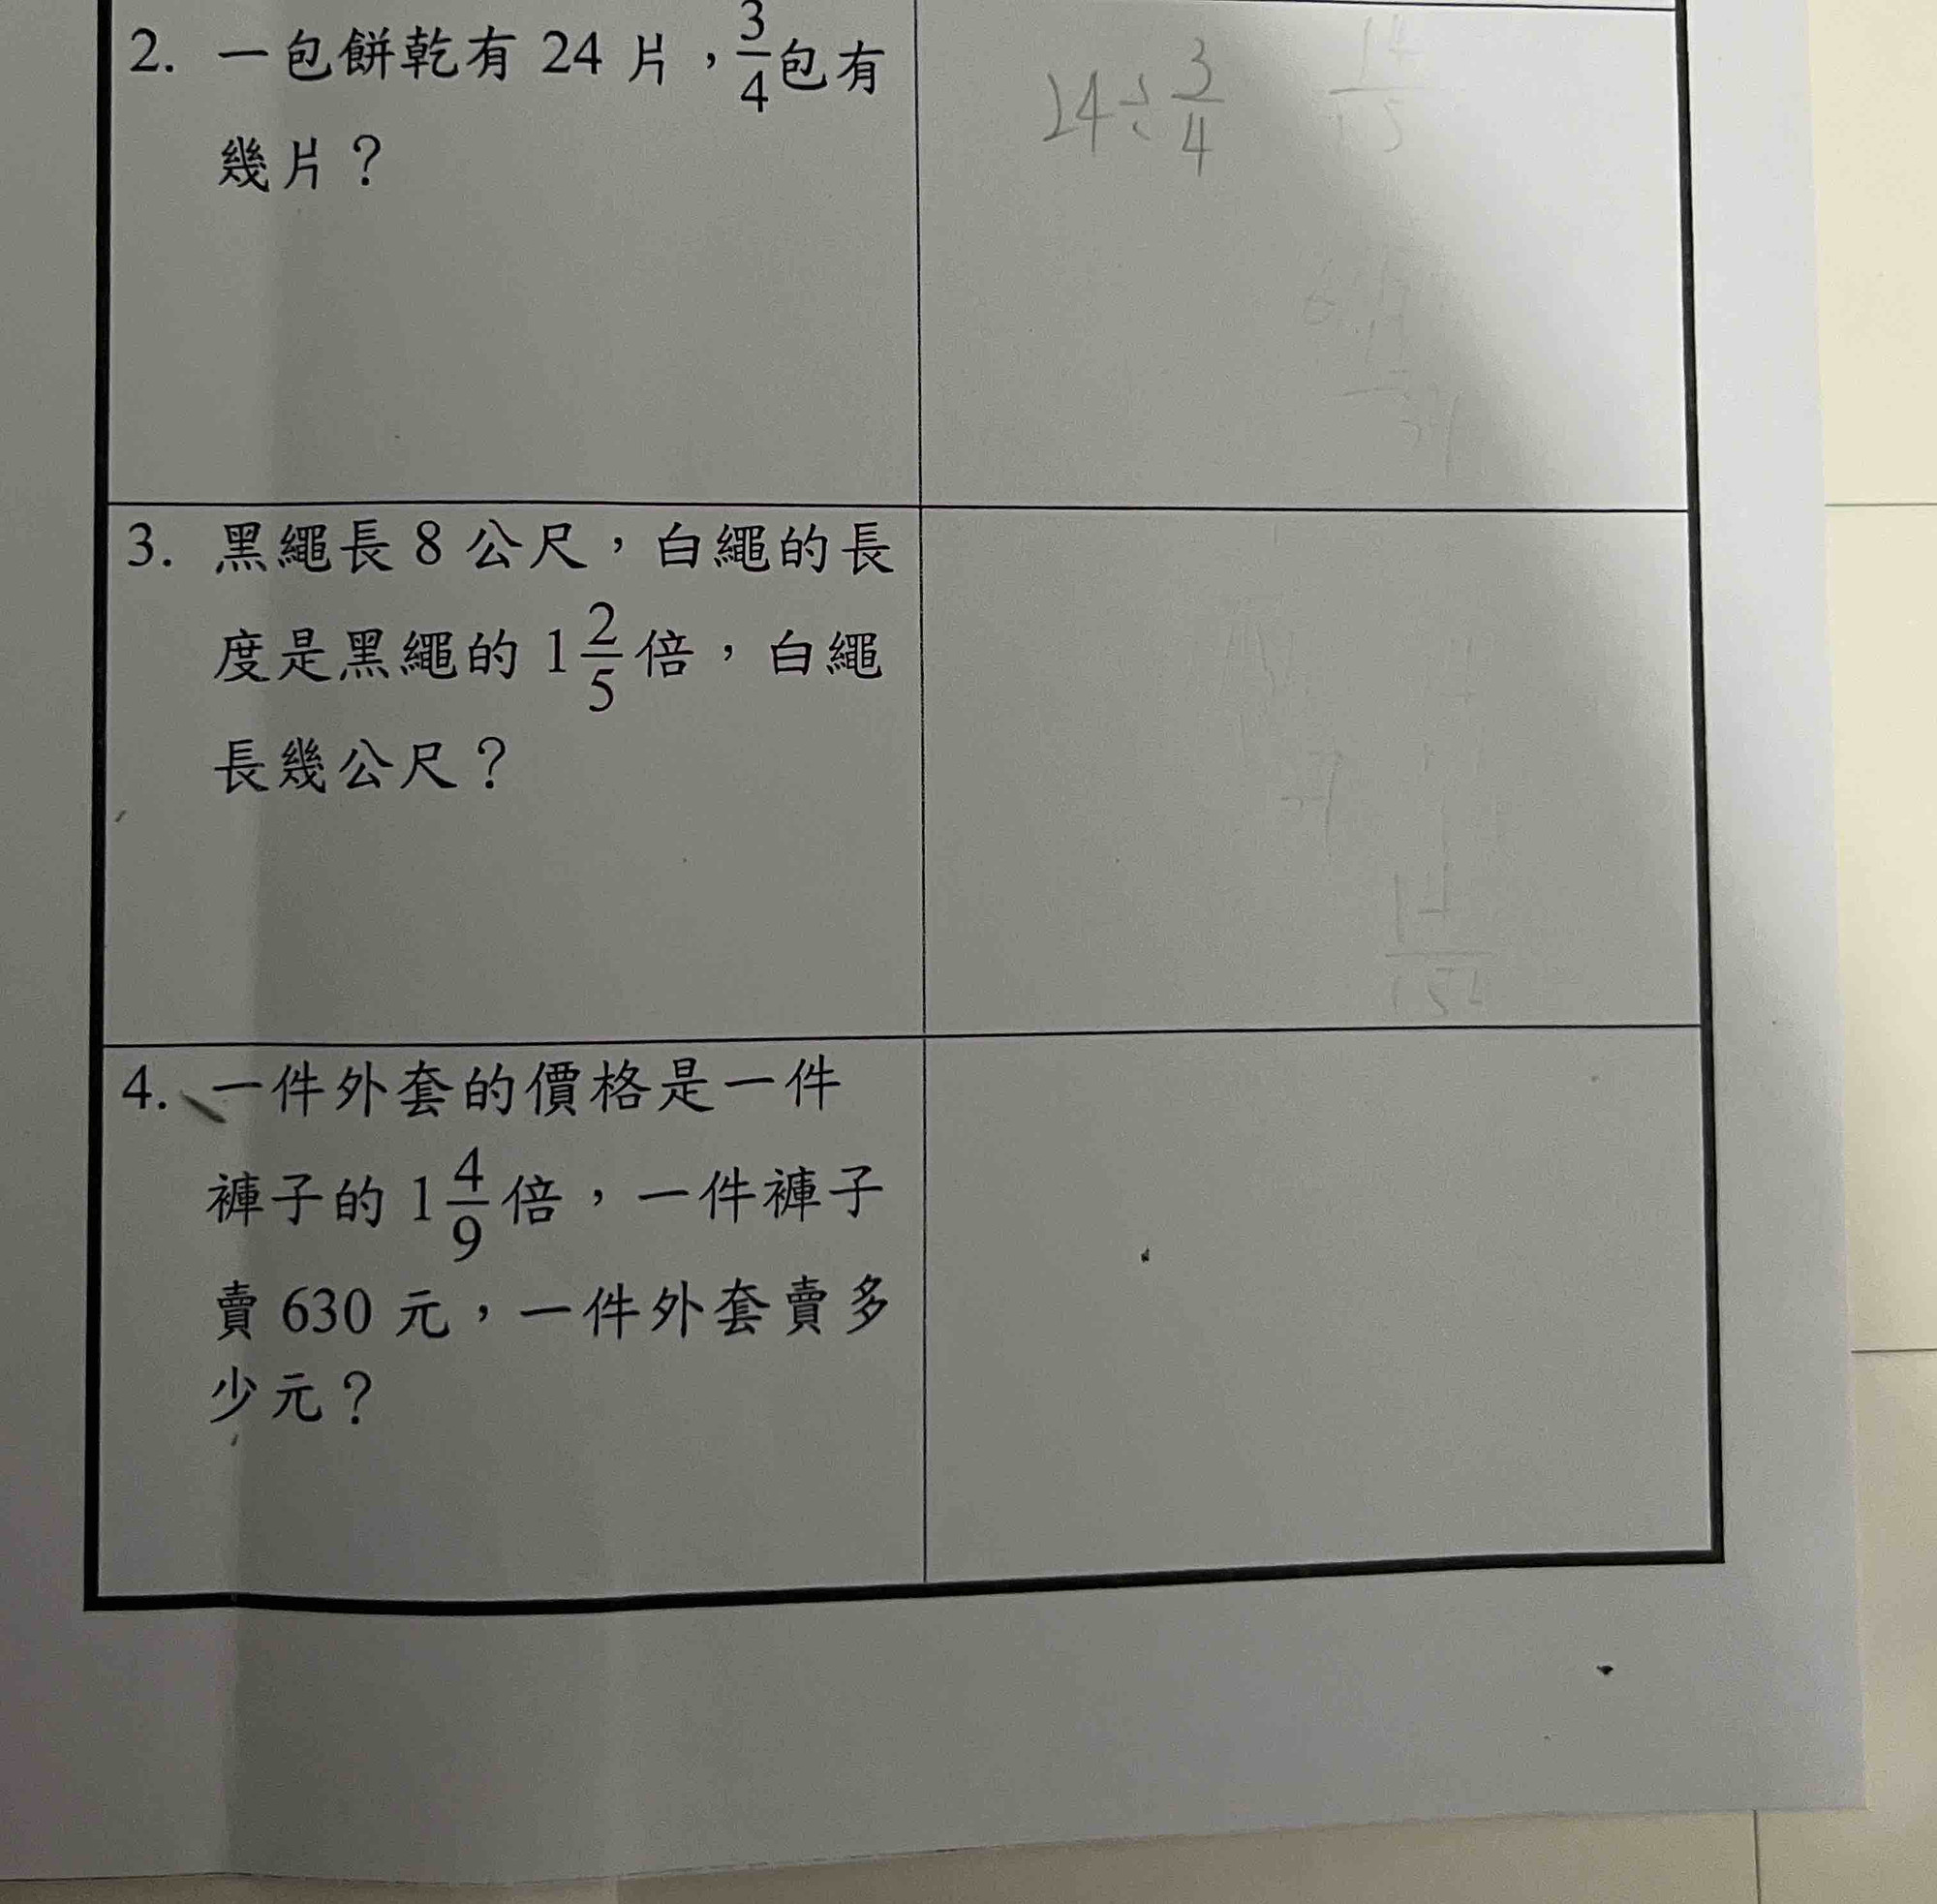 2. 一包餅乾有 24 片，3/4包有
幾片？
24÷3/4
14/15
3. 黑繩長 8 公尺，白繩的長
度是黑繩的 1 2/5倍，白繩
長幾公尺？
4. 一件外套的價格是一件
褲子的 1 4/9倍，一件褲子
賣 630 元，一件外套賣多
少元？